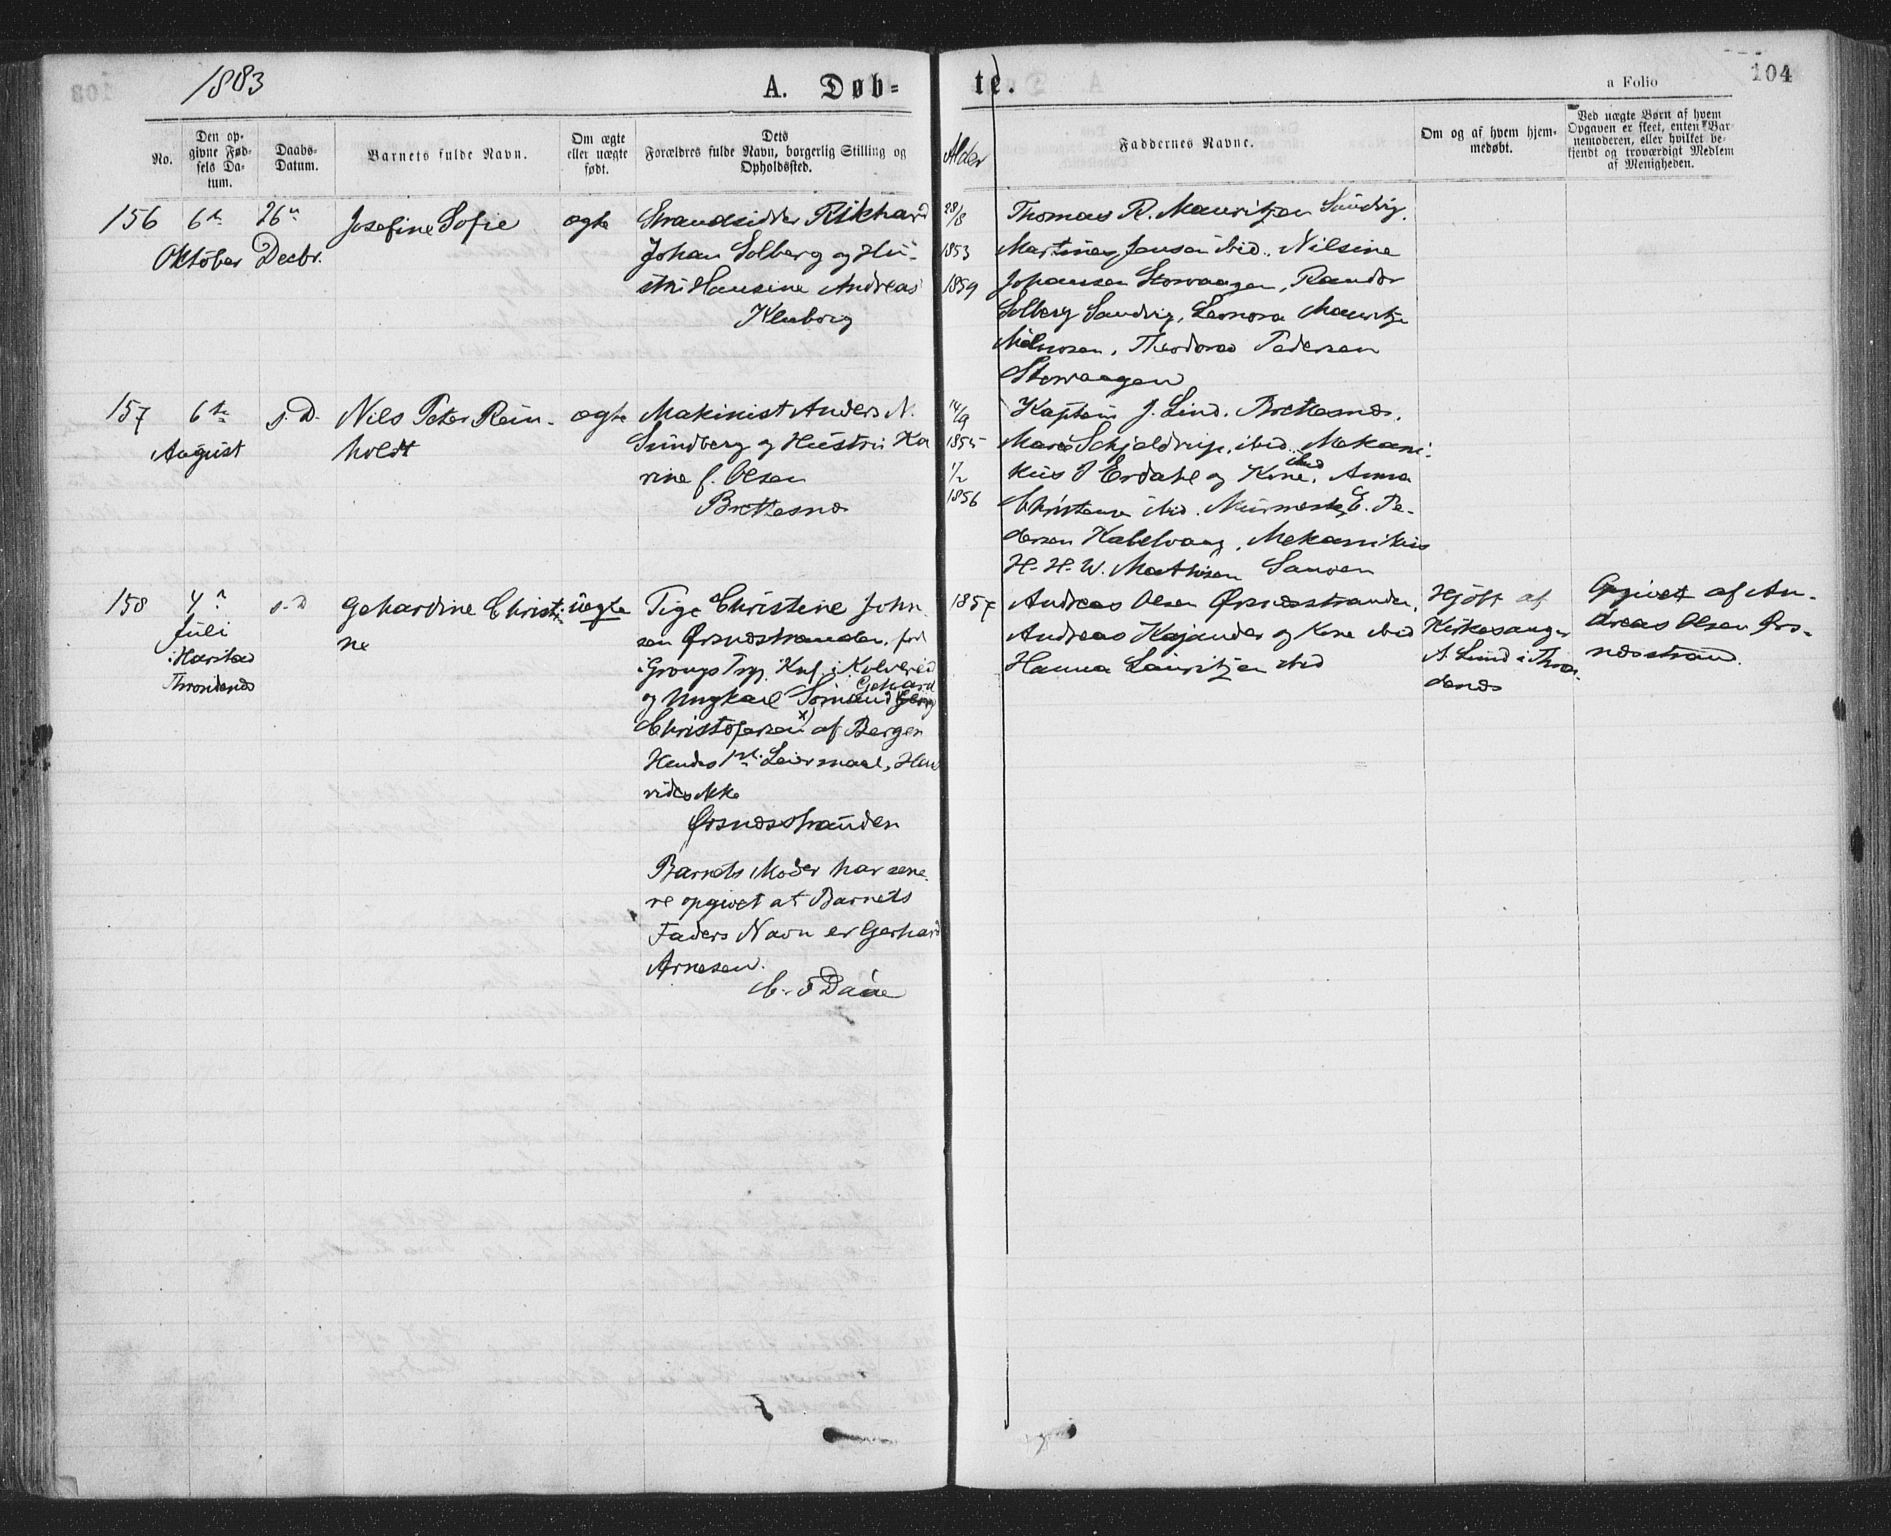 1883
A. Døb-
te.
a Folio
104
No.
Den op-
givne Fød-
sels Da-
tum.
Daabs-
Datum.
Barnets fulde Navn.
Om ægte
eller uægte
født.
Dets
Forældres fulde Navn, borgerlig Stilling og
Opholdssted.
Alder
Faddernes Navne.
Om og af hvem hjem-
medøbt.
Ved uægte Børn af hvem
Opgaven er skeet, enten Bar-
nemoderen, eller hvilket be-
kjendt og troværdigt Medlem
af Menigheden.
156
6te
Oktober
26de
Decbr.
Josefine Sofie
ægte
Strandsidder Rikhard
Johan Solberg og Hu-
stru Hansine Andreas
28/8
1853
1859
Thomas R. Mauritzen Sandvig.
Martines Jensen ibid. Nilsine
Johansen Storvaagen, Randor
Solberg Sandvig, Leonora Mauritz
Theodores Pedersen
Storvaagen
157
6te
August
s. D.
Nils Peter Rein-
holdt
ægte
Makinist Anders N.
Sundberg og Hustru Ka
rine f. Olsen
Brettesnæs
14/9
1855
1/2
1856
Kaptein J. Lind. Brettesnæs.
Marie Schjeldrup, ibid. Mekani-
kus P Erdahl og Kone, ibid Anna
Christensen ibid. Murmester E. Pe-
dersen Kabelvaag, Mekanikus
H. H. W. Mathisen
158
4de
Juli
i Harstad
Throndenæs
s. D
Gehardine Christi-
ne
uægte
Pige Christine John
sen Ørsnæsstranden, fød
i Grongs Prgj. Knf. i Kolvereid
og Ungkarl Gehard
Christofersen x) af Bergen
Hendes 1ste Leiermaal, Hans
vides ikke
Ørsnæsstranden
Barnets Moder har sene-
re opgivet at Barnets
Faders Navn er Gerhard
Arnesen.
1857
Andreas Olsen Ørsnæsstranden,
Andreas Kajander og Kone ibid
Hanna Lauritzen ibid
Hjdbt af
Kirkesanger
A. Lund i Thron-
denæs
Opgivet af An-
dreas Olsen Ørs-
næsstrand.